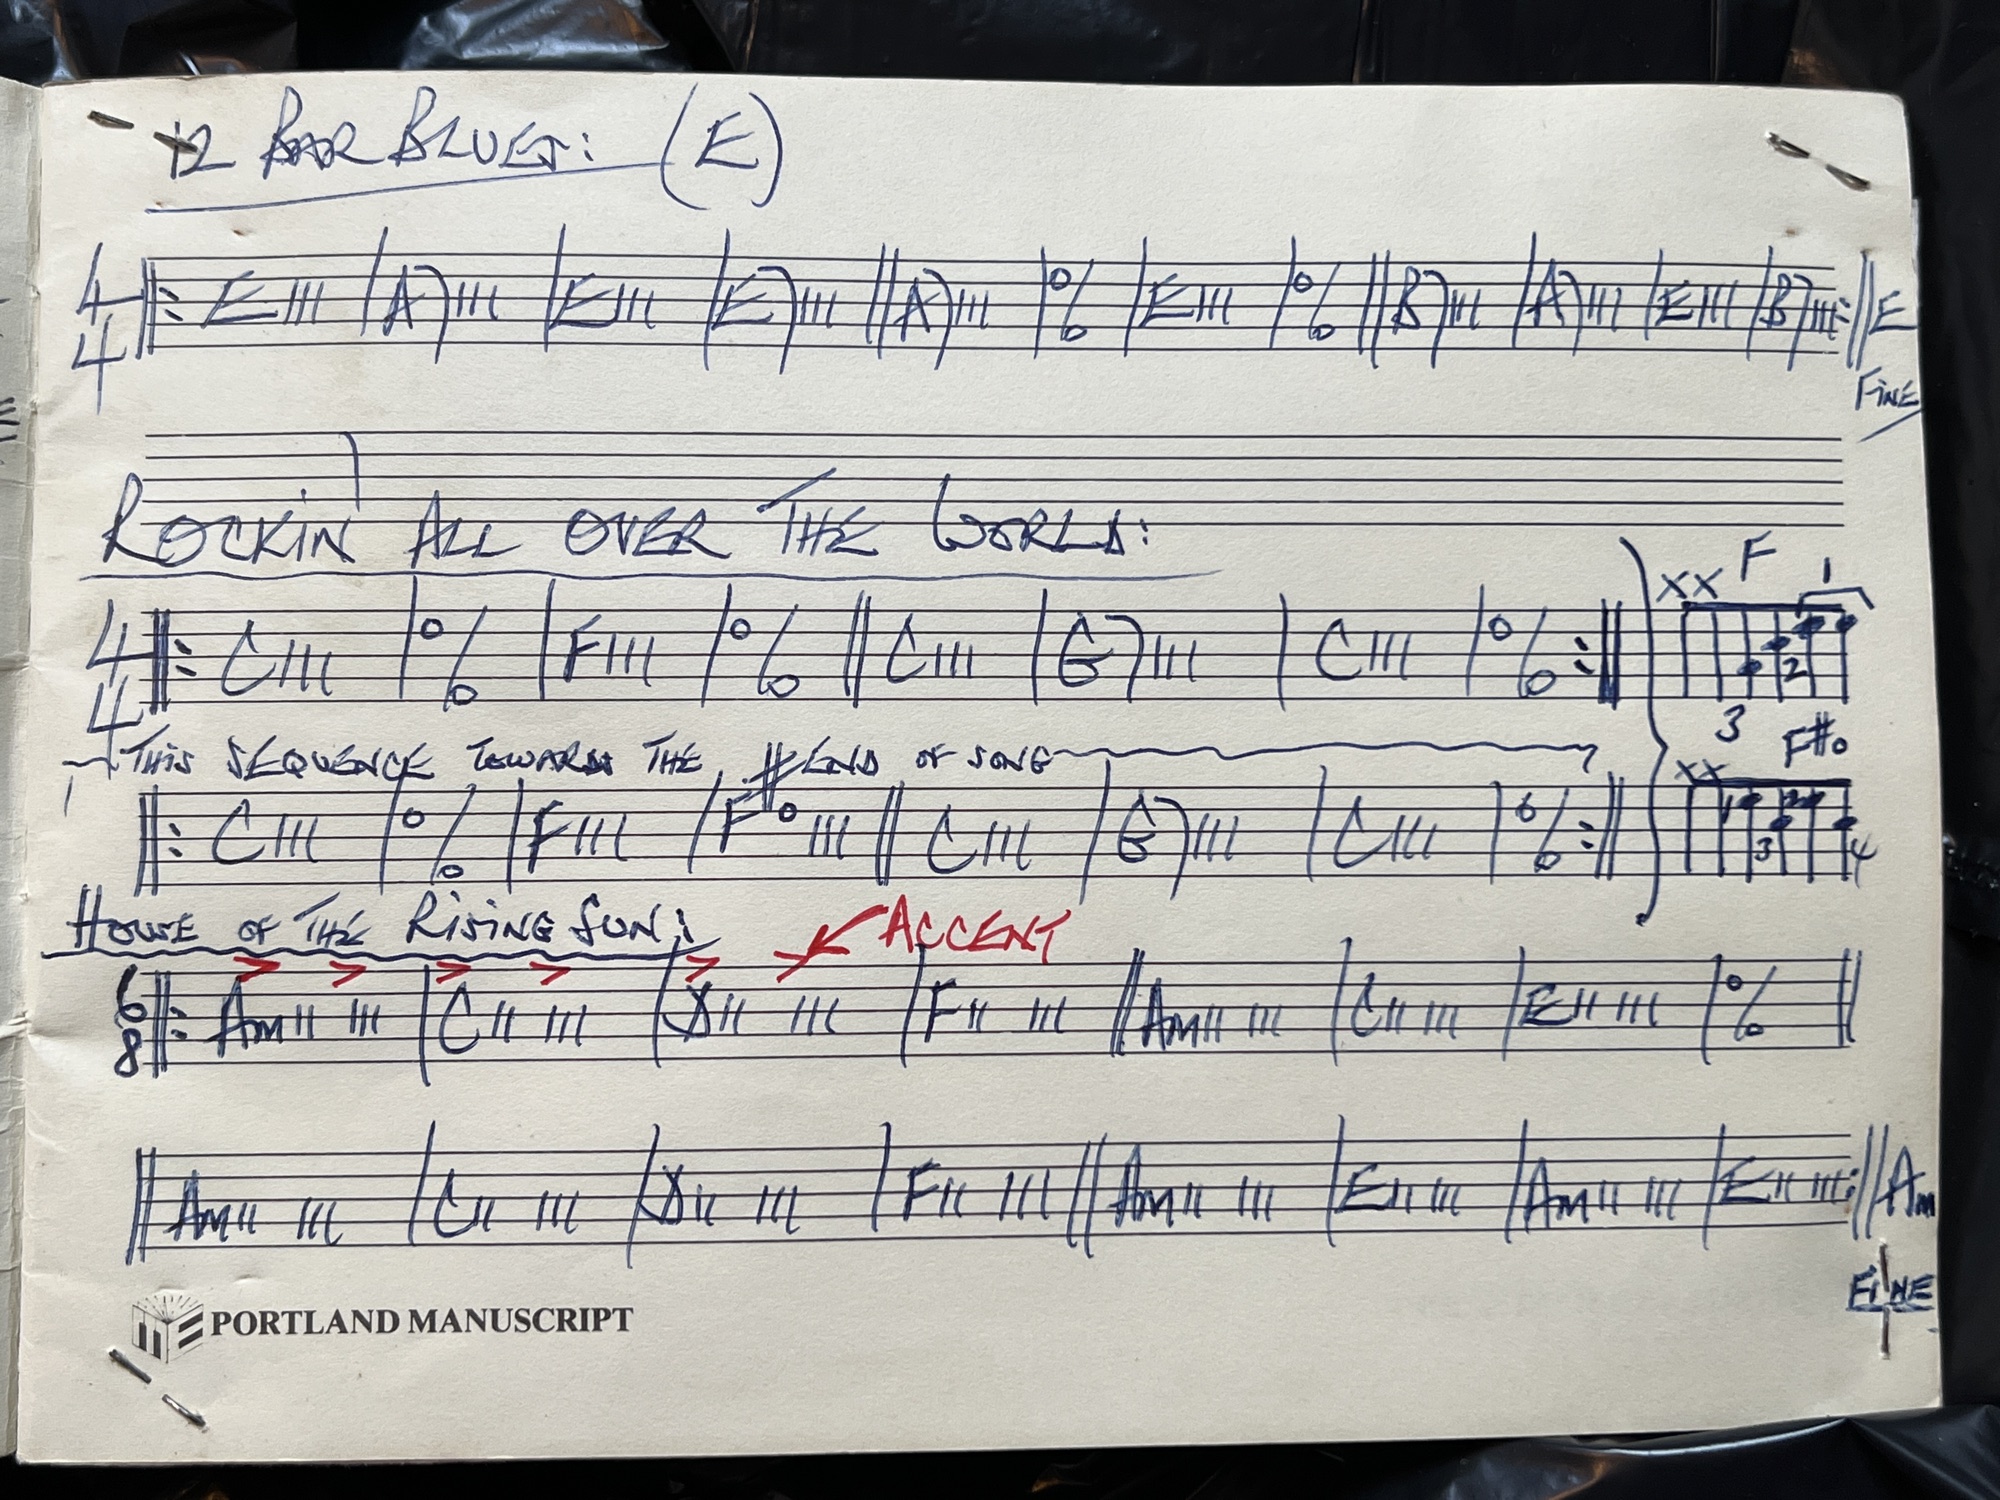 12 BAR BLUES: (E)
4/4 ||: E /// | A7 /// | E /// | E7 /// || A7 /// | % | E /// | % || B7 /// | A7 /// | E /// | B7 /// :|| E
FINE
ROCKIN' ALL OVER THE WORLD:
4/4 ||: C /// | % | F /// | % || C /// | G7 /// | C /// | % :||
F
XX 1
2
3
THIS SEQUENCE TOWARDS THE END OF SONG
||: C /// | % | F /// | F#o /// || C /// | G7 /// | C /// | % :||
F#o
XX
1 2
3 4
HOUSE OF THE RISING SUN:
> > > > > > ACCENT
6/8 ||: Am // /// | C // /// | D // /// | F // /// || Am // /// | C // /// | E // /// | % ||
|| Am // /// | C // /// | D // /// | F // /// || Am // /// | E // /// | Am // /// | E // /// :|| Am
FINE
PORTLAND MANUSCRIPT